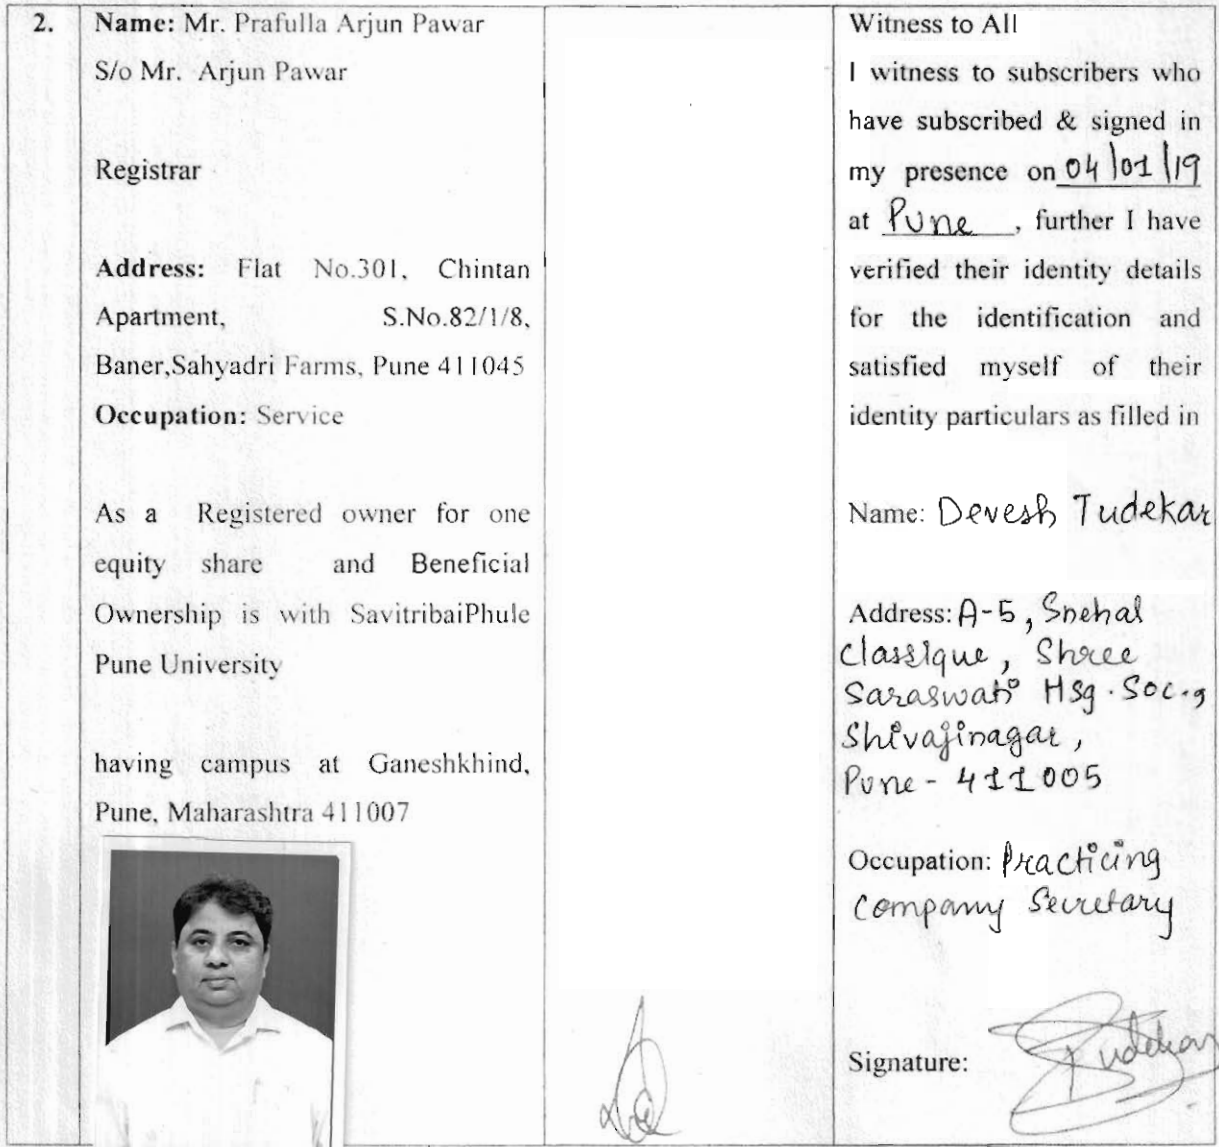 2.
Name: Mr. Prafulla Arjun Pawar
S/o Mr. Arjun Pawar
Registrar
Address: Flat No.301, Chintan
Apartment, S.No.82/1/8,
Baner,Sahyadri Farms, Pune 411045
Occupation: Service
As a Registered owner for one
equity share and Beneficial
Ownership is with SavitribaiPhule
Pune University
having campus at Ganeshkhind,
Pune, Maharashtra 411007
Witness to All
I witness to subscribers who
have subscribed & signed in
my presence on 04/01/19
at Pune, further I have
verified their identity details
for the identification and
satisfied myself of their
identity particulars as filled in
Name: Devesh Tudekar
Address: A-5, Snehal
Classique, Shree
Saraswati Hsg. Soc.,
Shivajinagar,
Pune - 411005
Occupation: Practicing
Company Secretary
Signature:
Tudekar